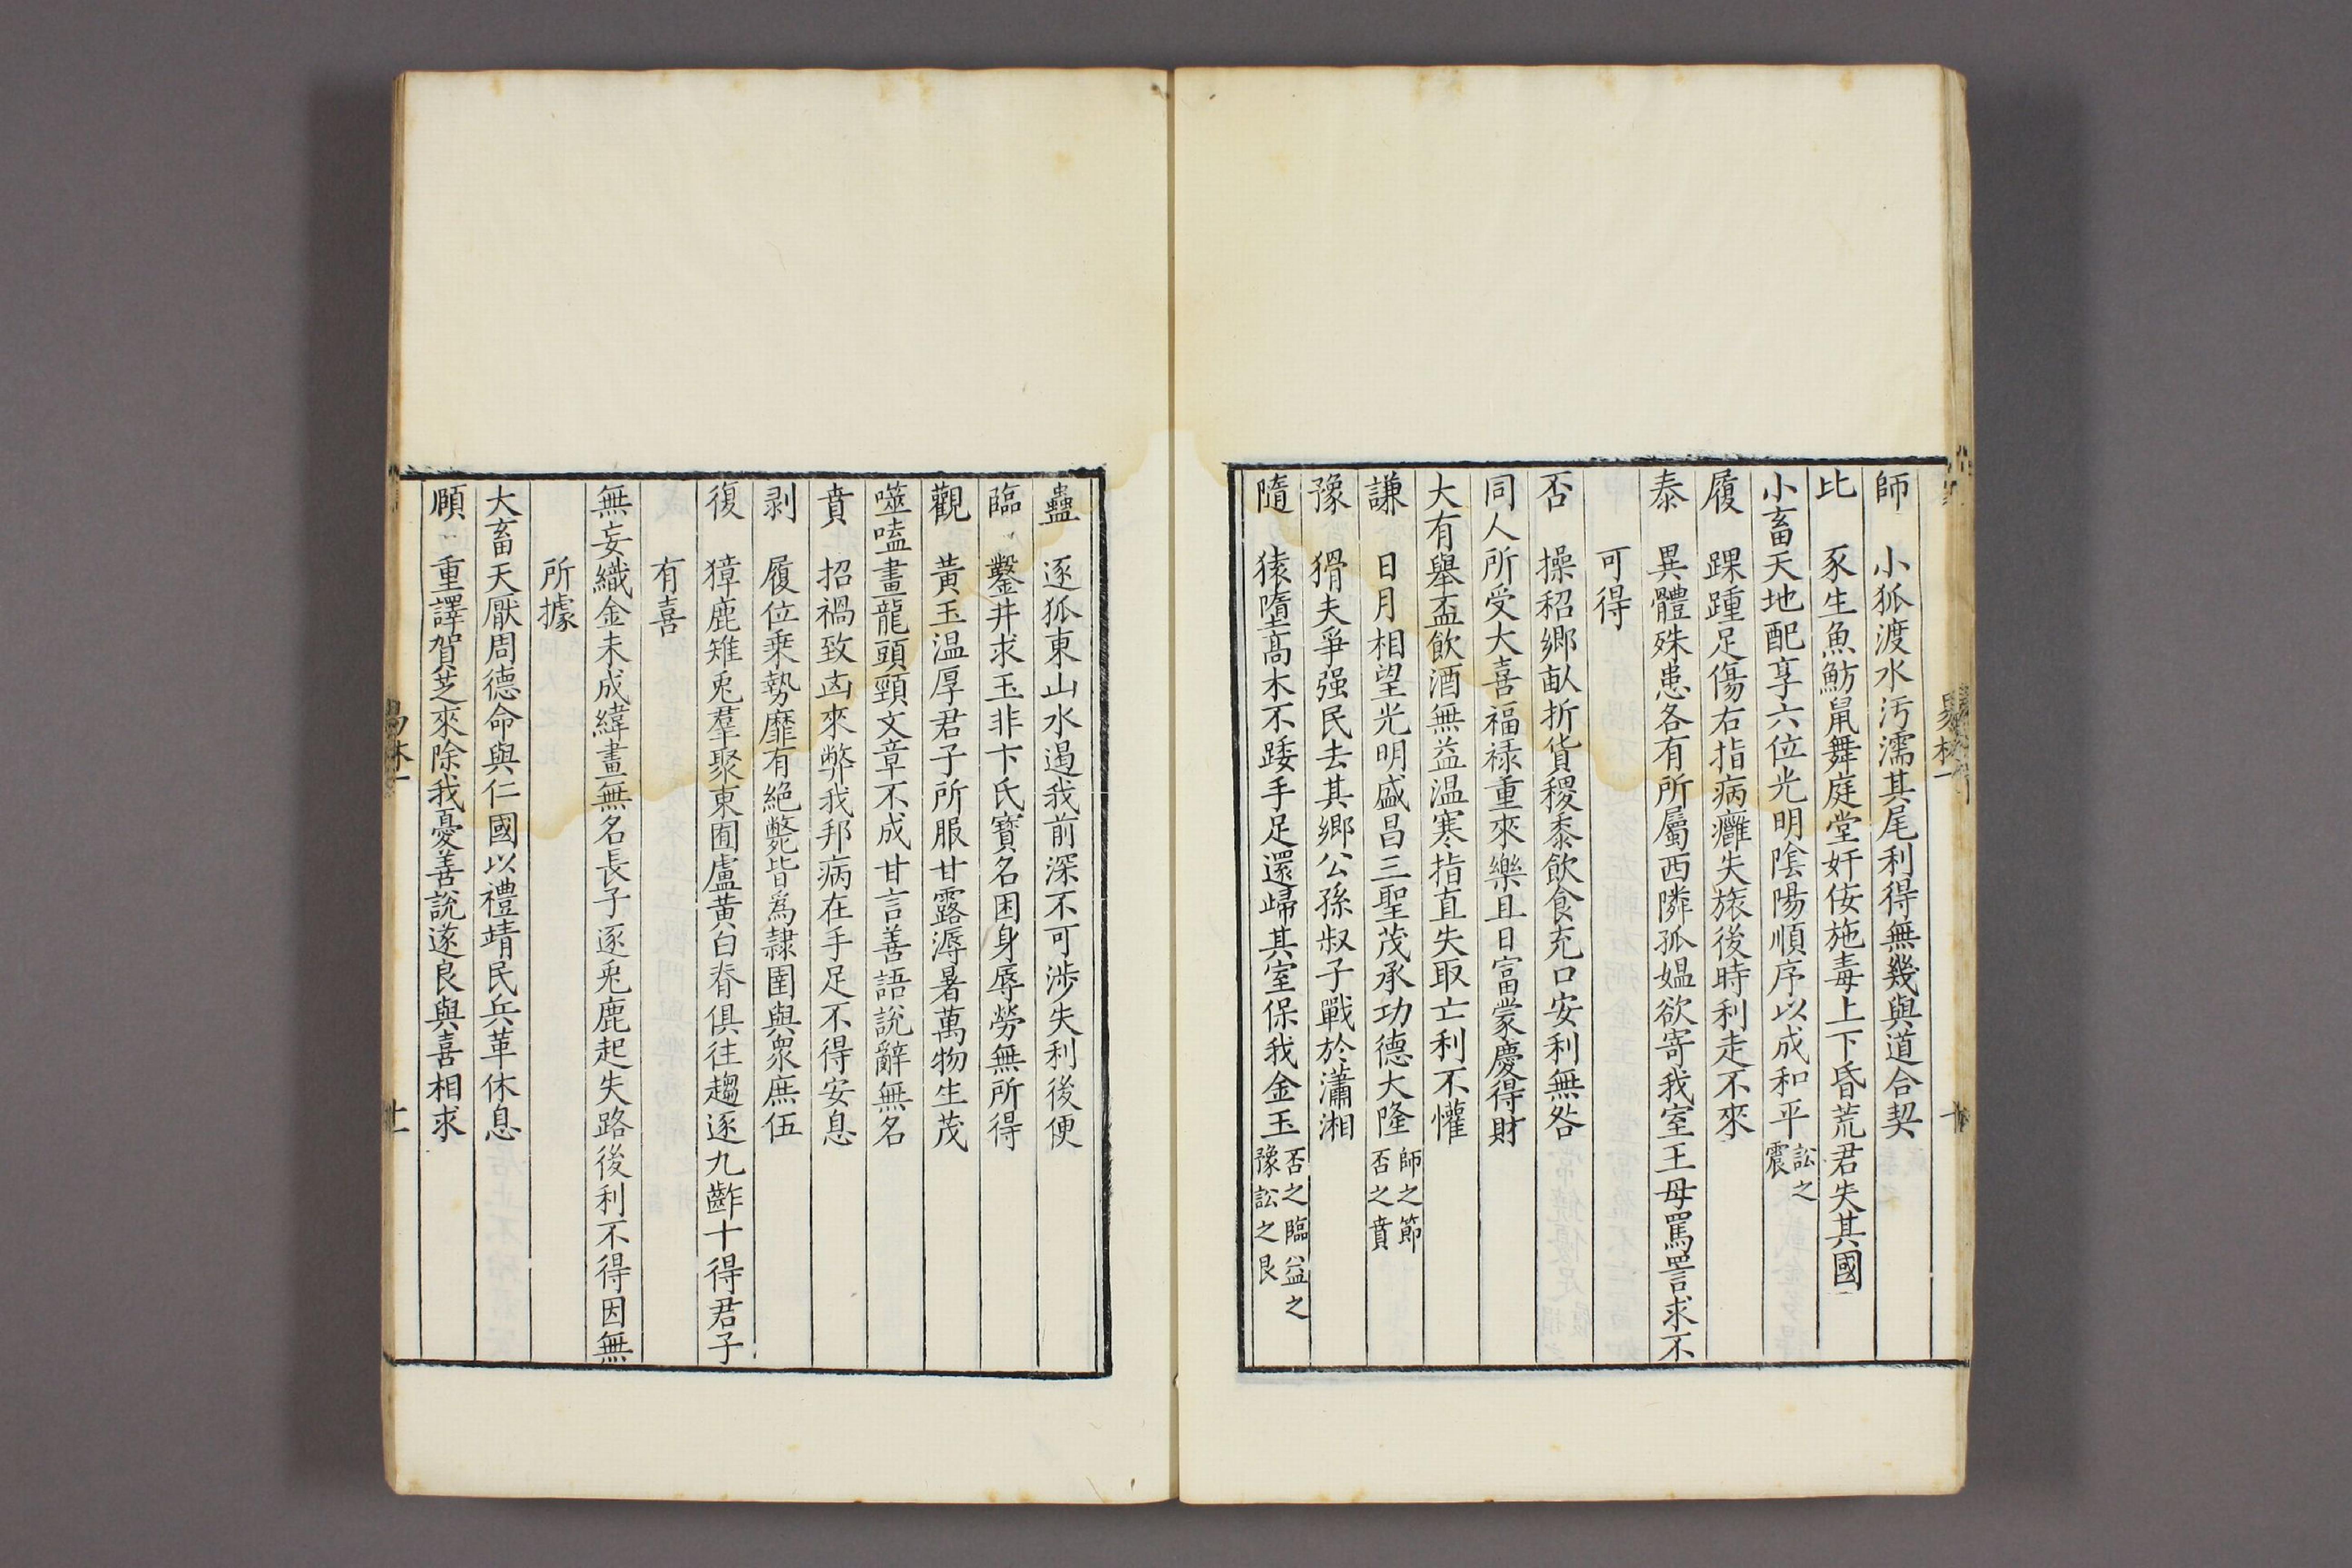 師　小狐渡水汚濡其尾利得無幾與道合契
比　豕生魚魴鼠舞庭堂奸佞施毒上下昏荒君失其國
小畜天地配享六位光明陰陽順序以成和平訟之震
履　踝踵足傷右指病癰失旅後時利走不來
泰　異體殊患各有所屬西隣孤媼欲寄我室王母罵詈求不
可得
否　操秬鄉畝折貨稷黍飲食充口安利無咎
同人所受大喜福祿重來樂且日富蒙慶得財
大有舉盃飲酒無益温寒指直失取亡利不懽
謙　日月相望光明盛昌三聖茂承功德大隆師之節否之賁
豫　猾夫爭强民去其鄉公孫叔子戰於瀟湘
隨　猿墮高木不踒手足還歸其室保我金玉否之臨益之豫訟之艮
易林一
十
蠱　逐狐東山水遏我前深不可涉失利後便
臨　鑿井求玉非卞氏寳名困身辱勞無所得
觀　黃玉温厚君子所服甘露溽暑萬物生茂
噬嗑畫龍頭頸文章不成甘言善語說辭無名
賁　招禍致凶來弊我邦病在手足不得安息
剥　履位乗勢靡有絶斃皆爲隸圉與衆庶伍
復　獐鹿雉兎羣聚東囿盧黃白脊俱往趨逐九齚十得君子
有喜
無妄織金未成緯畫無名長子逐兎鹿起失路後利不得因無
所據
大畜天厭周德命與仁國以禮靖民兵革休息
頤　重譯賀芝來除我憂善說遂良與喜相求